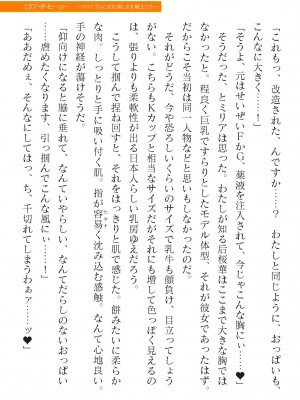 「これもっ、改造された、んですか……？　わたしと同じように、おっぱいも、
こんなに大きく……！」
「そうよ、元はせいぜいＦかＧ、薬液を注入されて、今じゃこんな胸にぃ……♥」
そうだった、とミリアは思った。わたしが知る后桜華はここまで大きな胸では
なかったと。程良く巨乳ですらりとしたモデル体型、それが彼女であったはず。
だからこそ当初は同一人物などと思いもしなかったのだ。
それがどうだ、今や恐ろしいくらいのサイズだ。乳牛も顔負け、目立ってしょう
がない。こちらもＫカップと相当なサイズだがそれにも増して色っぽく見えるの
は、張りよりも柔軟性が出る日本人らしい乳房ゆえだろう。
こうして掴んで捏ね回すと、それをはっきりと肌で感じた。餅みたいに柔らか
な肉、しっとりと手に吸い付く肌。指が容易く沈み込む感触。なんて心地良い。
手の神経が萌すようだ。
「仰向けになると脇に垂れて、なんていやらしい、なんてだらしのないおっぱい
……虐めたくなります、引っ掴んでこんな風にぃ……！」
「ああだめぇ、そんなにしてはっ、ち、千切れてしまうわぁァ……ッ♥」